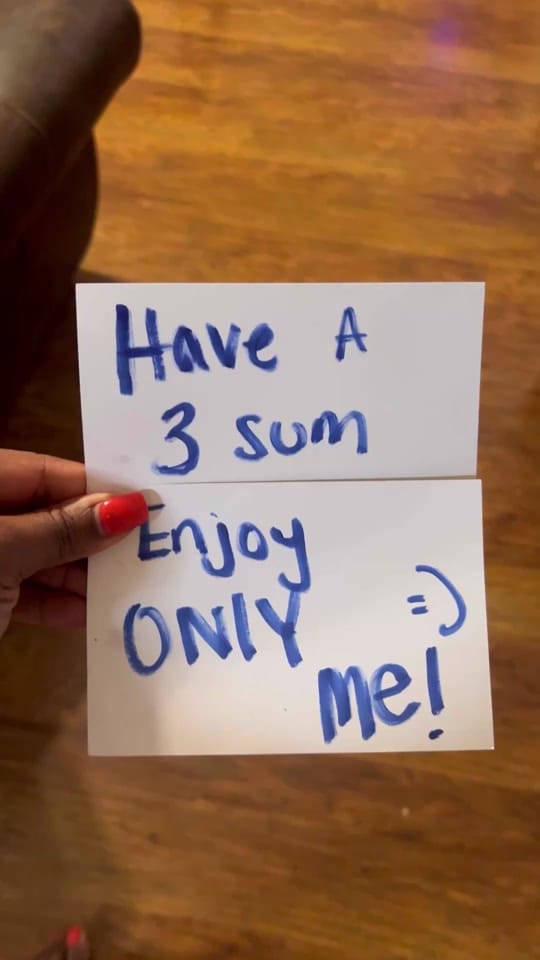 Have A
3 sum
Enjoy
ONLY =)
me!